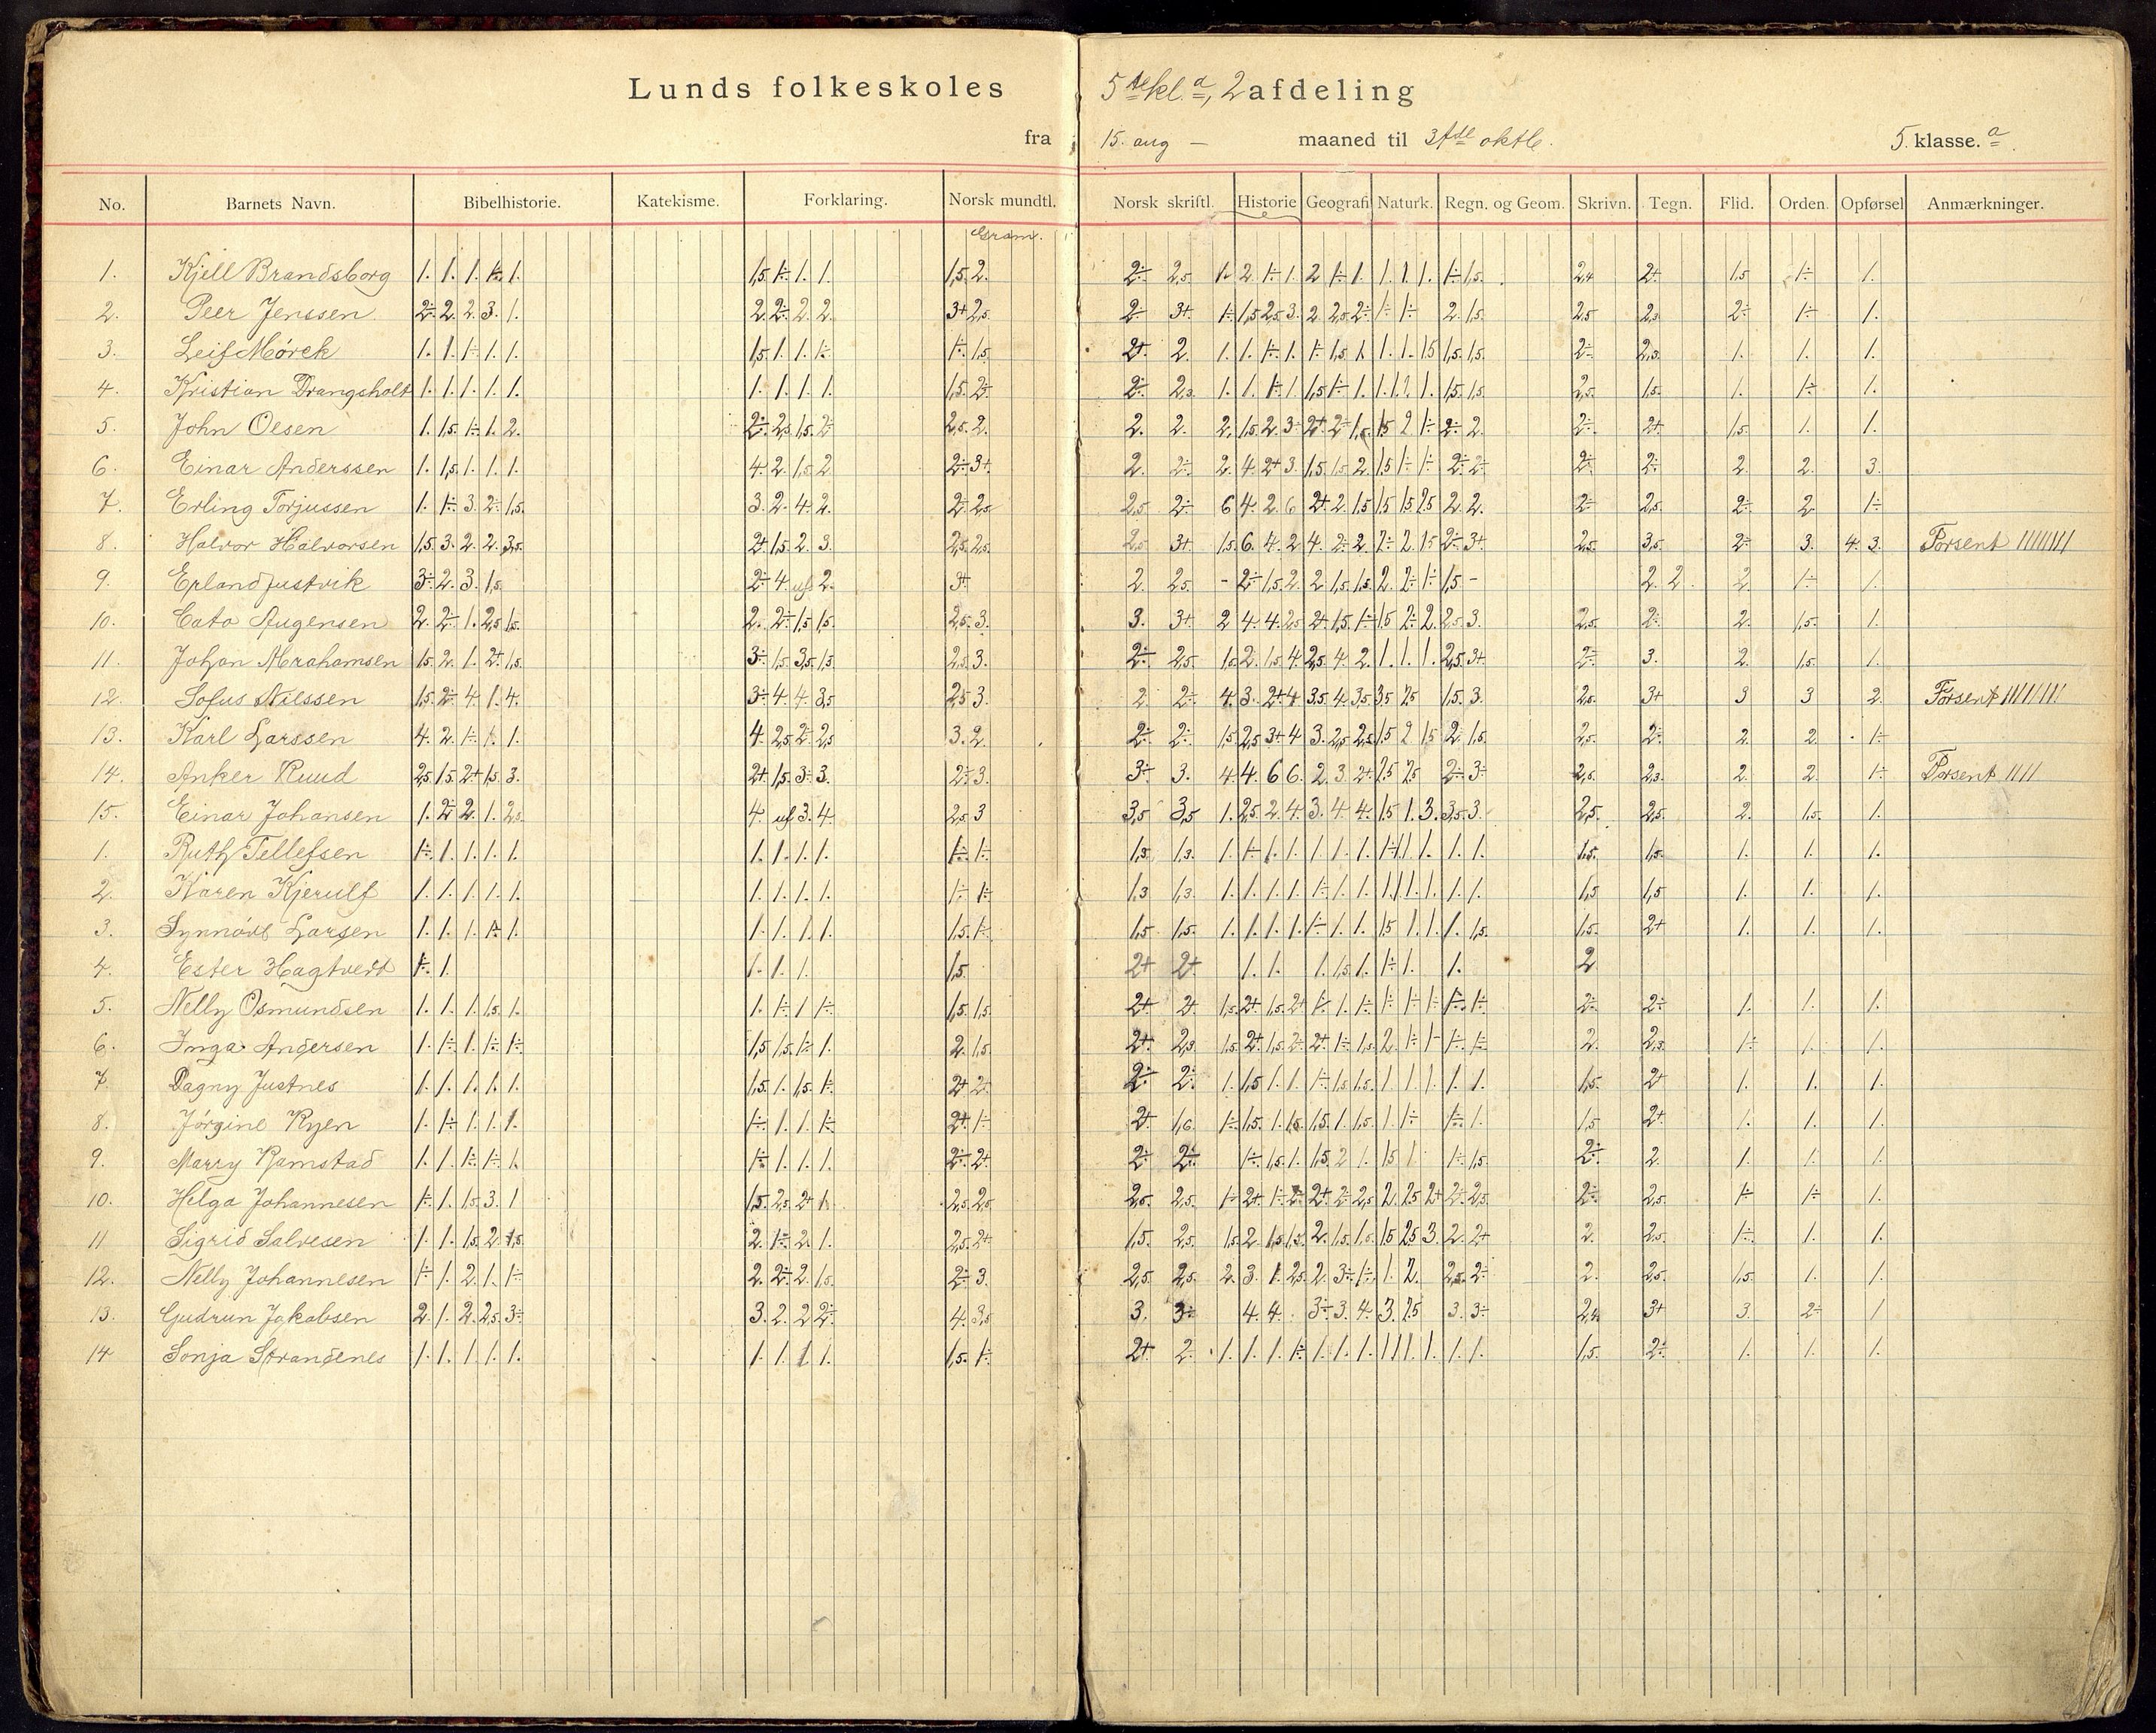 Lunds folkeskoles 5te kl. a, 2 afdeling
fra 15. aug – maaned til 31te oktb. 5. klasse. a
No. Barnets Navn. Bibelhistorie. Katekisme. Forklaring. Norsk mundtl. Norsk skriftl. Historie Geografi Naturk. Regn. og Geom. Skrivn. Tegn. Flid. Orden. Opførsel Anmærkninger.
Gram.
1. Kjell Brandsborg 1. 1. 1. 1÷. 1. 1,5 1÷. 1. 1. 1,5. 2. 2÷ 2,5 1. 2. 1÷ 1. 2 1÷ 1. 1. 1. 1. 1÷ 1,5. 2,4 2+. 1,5 1÷ 1.
2. Peer Jenssen 2÷. 2. 2. 3. 1. 2. 2÷. 2. 2. 3+ 2,5. 2÷ 3+. 1÷ 1,5 2,5 3. 2. 2,5 2÷ 1÷ 1÷ 2. 1,5. 2,5 2,3. 2÷ 1÷ 1.
3. Leif Mörck 1. 1. 1÷ 1. 1. 1,5. 1. 1. 1÷. 1÷. 1,5. 2+. 2. 1. 1. 1÷. 1. 1÷ 1,5 1. 1. 1. 1,5 1,5. 1,5. 2÷ 2,3. 1. 1. 1.
4. Kristian Drangsholt 1. 1. 1. 1. 1. 1. 1. 1. 1. 1,5. 2÷. 2÷. 2,3. 1. 1. 1÷ 1. 1,5 1÷ 1. 1. 1. 1. 1,5. 1,5. 2,5. 1,5. 1. 1÷ 1.
5. John Olsen 1. 1,5. 1÷. 1. 2. 2÷. 2,5. 1,5. 2÷ 2,5. 2. 2. 2. 2. 1,5. 2. 3÷ 2+. 2÷ 1,5. 1,5 2 1÷ 2÷. 2. 2÷. 2+. 1,5. 1. 1.
6. Einar Anderssen 1. 1,5. 1. 1. 1. 4. 2. 1,5. 2. 2÷. 3+. 2. 2÷ 2. 4. 2+ 3. 1,5. 1,5. 2. 1,5 1÷ 1÷ 2÷. 2÷ 2÷. 2÷ 2. 2. 3.
7. Erling Torjussen 1. 1÷. 3. 2÷ 1,5. 3. 2. 4. 2. 2÷. 2,5 2,5 2÷ 6 4. 2. 6 2+. 2. 1,5 1,5 1,5 2,5 2. 2. 2÷ 2,5. 2÷. 2. 1÷
8. Halvor Halvorsen 1,5. 3. 2. 2. 3,5. 2+. 1,5. 2. 3. 2,5. 2,5. 2,5 3+. 1,5. 6. 4. 2 4. 2÷ 2. 2÷ 2. 1,5 2÷. 3+. 2,5. 3,5. 2÷ 3. 4. 3. Forsent ||||||||
9. Erland Justvik 3÷. 2. 3. 1,5. 2÷ 4. 2. 3+ 2. 2,5. – 2÷ 1,5. 2. 2. 1,5. 1,5. 2. 2÷ 1÷ 1,5 – 2. 2. 2. 1÷ 1.
10. Cato Augensen 2. 2÷. 1. 2,5. 1,5. 2. 2÷. 1,5. 1,5. 2,5. 3. 3. 3+. 2 4. 4. 2,5 2+. 1,5. 1÷ 1,5 2÷ 2. 2,5 3. 2,5. 2÷. 2. 1,5. 1.
11. Johan Abrahamsen 1,5. 2. 1. 2+. 1,5. 3÷. 1,5. 3,5. 1,5. 2,5. 3. 2÷. 2,5. 1,5. 2. 1,5. 4. 2,5. 4. 2. 1. 1. 1. 2,5. 3+. 2÷. 3. 2. 1,5. 1.
12. Sofus Nilssen 1,5. 2÷. 4. 1. 4. 3÷. 4. 4. 3,5 2,5 3. 2. 2÷ 4. 3. 2+ 4 3,5 4. 3,5. 3,5 2,5 1,5. 3. 2,5. 3+ 3 3 2. Forsent ||||||||
13. Karl Larssen 4. 2. 1÷. 1. 1. 4. 2,5. 2÷ 2,5 3. 2. 2÷ 2÷. 1,5 2,5 3+ 4 3. 2,5 2,5 1,5 2 1,5 2. 1,5. 2,5. 2÷. 2. 2. 1÷
14. Anker Ruud 2,5. 1,5. 2+. 1,5. 3. 2+. 1,5. 3÷ 3. 2÷. 3. 3÷ 3. 4 4. 6 6. 2. 3. 2+. 2,5 2,5 2÷ 3÷ 2,5. 2,3. 2. 2. 1÷ Forsent ||||
15. Einar Johansen 1. 2÷ 2. 1. 2,5. 4. 3. 4. 2,5. 3 3,5 3,5 1. 2,5. 2. 4. 3. 4. 4. 1,5 1. 3. 3,5. 3. 2,5. 2,5. 2. 1,5. 1.
1. Ruth Tellefsen 1÷. 1. 1. 1. 1. 1. 1. 1. 1. 1÷. 1÷. 1,3. 1,3. 1. 1÷ 1. 1. 1. 1. 1. 1÷ 1. 1. 1. 1. 1,5. 1,5. 1. 1. 1.
2. Karen Kjerulf 1. 1. 1. 1. 1. 1. 1. 1. 1. 1÷ 1÷ 1,3 1,3. 1. 1. 1. 1. 1÷. 1. 1. 1. 1. 1. 1. 1. 1,5 1,5 1. 1. 1.
3. Synnöve Larsen 1. 1. 1. 1÷ 1. 1. 1. 1. 1. 1,5. 1÷. 1,5 1,5. 1. 1. 1. 1. 1÷ 1. 1. 1,5 1. 1. 1. 1,5. 1,5. 2+ 1. 1. 1.
4. Ester Hagtvedt 1÷. 1. 1. 1. 1. 1,5. 2+ 2+ 1. 1. 1. 1,5. 1. 1÷ 1. 1. 2
5. Nelly Osmundsen 1. 1. 1. 1,5. 1. 1. 1÷ 1 1÷ 1,5. 1,5. 2+ 2+. 1,5. 2+. 1,5. 2+ 1÷ 1. 1÷ 1÷ 1÷ 1÷ 1÷. 1÷ 2÷ 2÷ 1. 1. 1.
6. Inga Andersen 1. 1÷. 1. 1÷. 1÷. 1,5 1,5. 1÷ 1. 2. 1,5. 2+. 2,3. 1,5. 2+. 1,5. 2÷ 2+ 1÷ 1,5. 2. 1÷ 1÷ 1÷. 1÷ 2. 2,3. 1÷ 1. 1.
7. Dagny Justnes 1. 1. 1. 1. 1. 1,5. 1. 1,5. 1÷. 2+ 2+. 2÷. 2÷. 1. 1,5 1. 1. 1÷. 1,5 1,5. 1. 1. 1. 1. 1. 1,5. 2+ 1. 1. 1.
8. Jörgine Ryen 1. 1÷. 1. 1. 1. 1÷. 1. 1. 1÷. 2+. 1÷ 2+. 1,6. 1÷. 1,5. 1. 1,5. 1,5. 1. 1,5. 1. 1÷ 1÷. 1. 1,5 2+. 1. 1. 1.
9. Marry Ramstad 1. 1. 1÷. 1÷. 1. 1÷. 1. 1. 1. 2÷. 2+. 2÷ 2÷. 1÷. 1,5. 1. 1,5. 2. 1. 1,5 1. 1÷. 1,5. 2÷. 2. 1. 1. 1.
10. Helga Johannesen 1÷. 1. 1,5. 3. 1 1,5. 2,5. 2+ 1. 2,5. 2,5. 2,5. 2,5. 1÷ 2+. 1÷ 2÷ 2+ 2÷ 2,5 2. 2,5 2+ 2÷ 2,5. 2÷. 2,5. 1÷ 1÷ 1.
11 Sigrid Salvesen 1. 1. 1,5. 2. 1,5. 2. 1÷ 2. 1. 2,5. 2+. 1,5. 2,5. 1,5. 2. 1,5. 1,5. 2. 1,5. 1,5. 1,5 2,5 3. 2. 2+ 2. 2,5. 1÷. 1. 1.
12. Nelly Johannesen 1÷ 1. 2. 1. 1÷. 2. 2÷. 2. 1,5. 2÷. 3. 2,5. 2,5. 2. 3. 1. 2,5. 2. 3÷. 1÷. 1. 2. 2,5. 2÷. 2. 2,5. 1,5. 1. 1.
13. Gudrun Jakobsen 2. 1. 2. 2,5. 3÷. 3. 2. 2. 2÷. 4. 3,5 3. 3÷. 4. 4. 3÷. 3. 4. 3. 2,5 3. 3÷. 2,4 3+ 3. 2÷ 1
14 Sonja Strandenes 1. 1. 1. 1. 1. 1. 1. 1. 1. 1,5. 1÷. 2+ 2. 1. 1. 1. 1÷. 1. 1. 1. 1. 1. 1. 1. 1. 1,5. 2÷. 1. 1. 1.